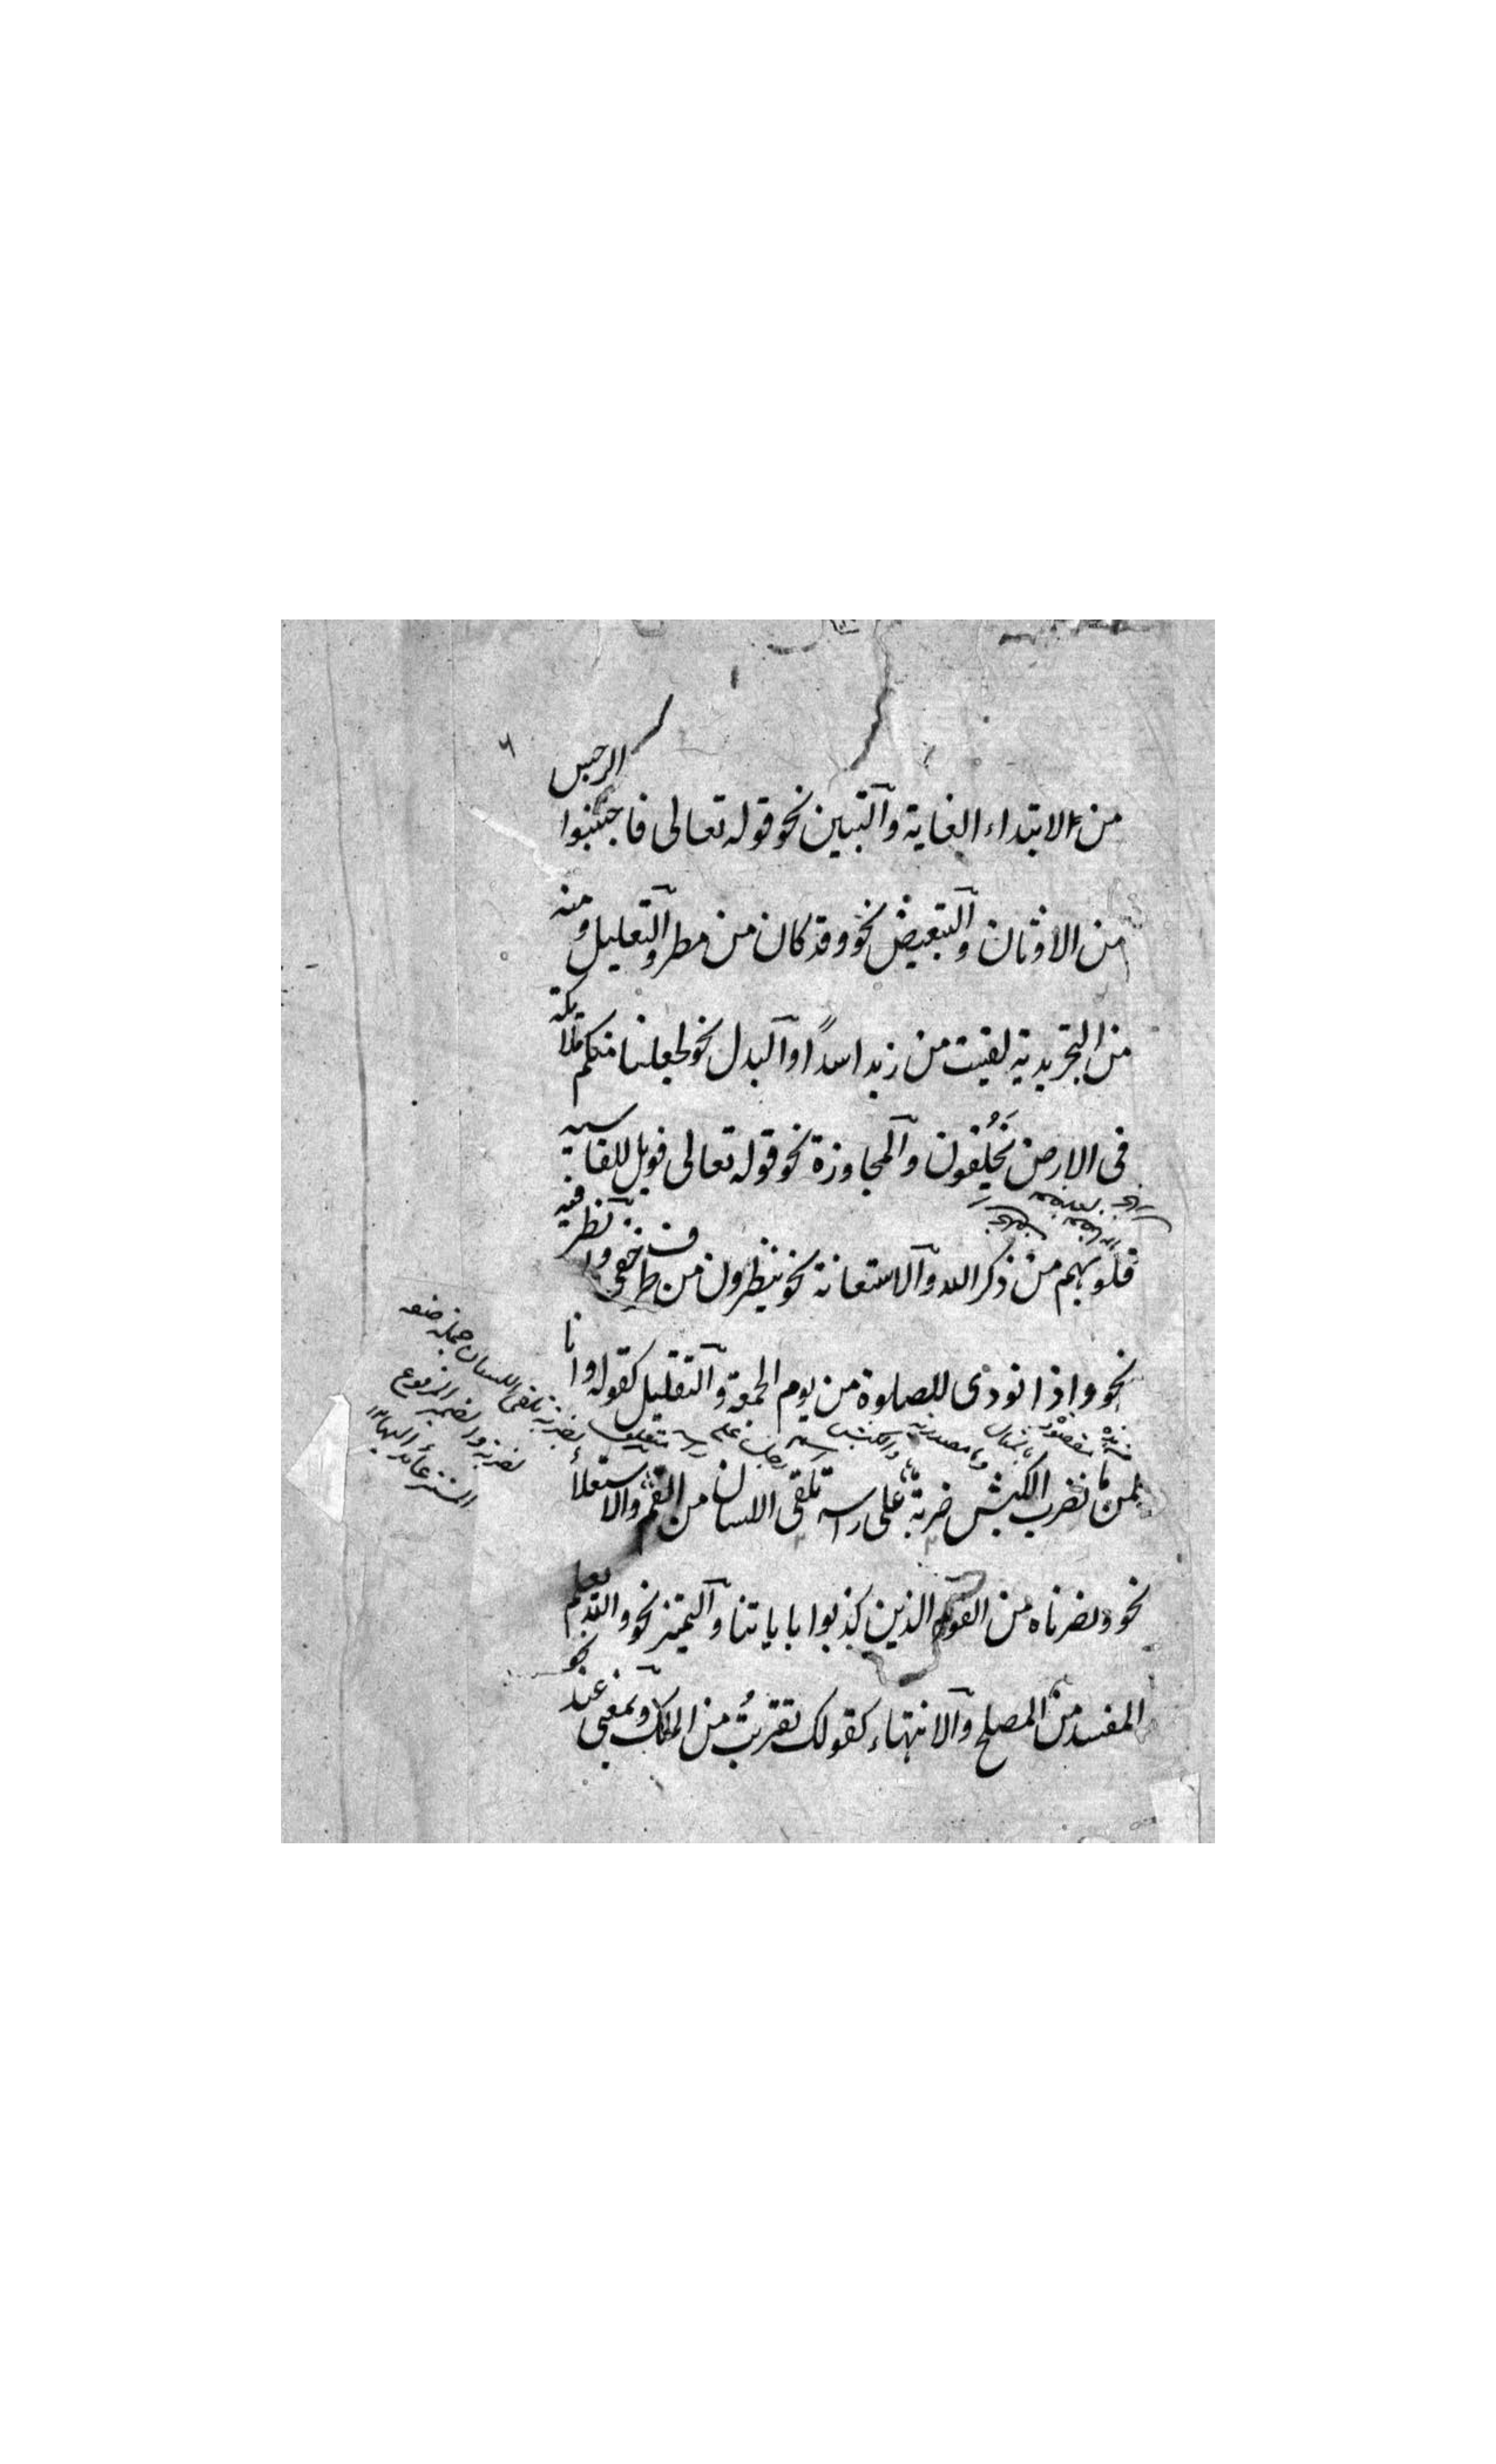 من ٤ الابتداء الغاية والتبيين نحو قوله تعالى فاجتنبوا الرجس
من الاوثان والتبعيض نحو وقد كان من مطر والتعليل ومنه
من التجريدية لقيت من زيد اسدًا والبدل نحو لجعلنا منكم ملائكة
فى الارض يَخْلُفُون والمجاوزة نحو قوله تعالى فويل للقاسية
قلوبهم من ذكر الله والاستعانة نحو ينظرون من طرف خفى والظرفية
نحو واذا نودى للصلوة من يوم الجمعة والتقليل كقوله وانا
لمن ما نضرب الكبش ضربة على راسه تلقى اللسان من الفم والاستعلاء
نحو ونصرناه من القوم الذين كذبوا باياتنا والتميز نحو والله يعلم
المفسد من المصلح والانتهاء كقولك تقربتُ من الملك وبمعنى عند نحو
تلقى اللسان جملة صفة
لضربة والضمير المرفوع
المستتر عائد اليها ١٢